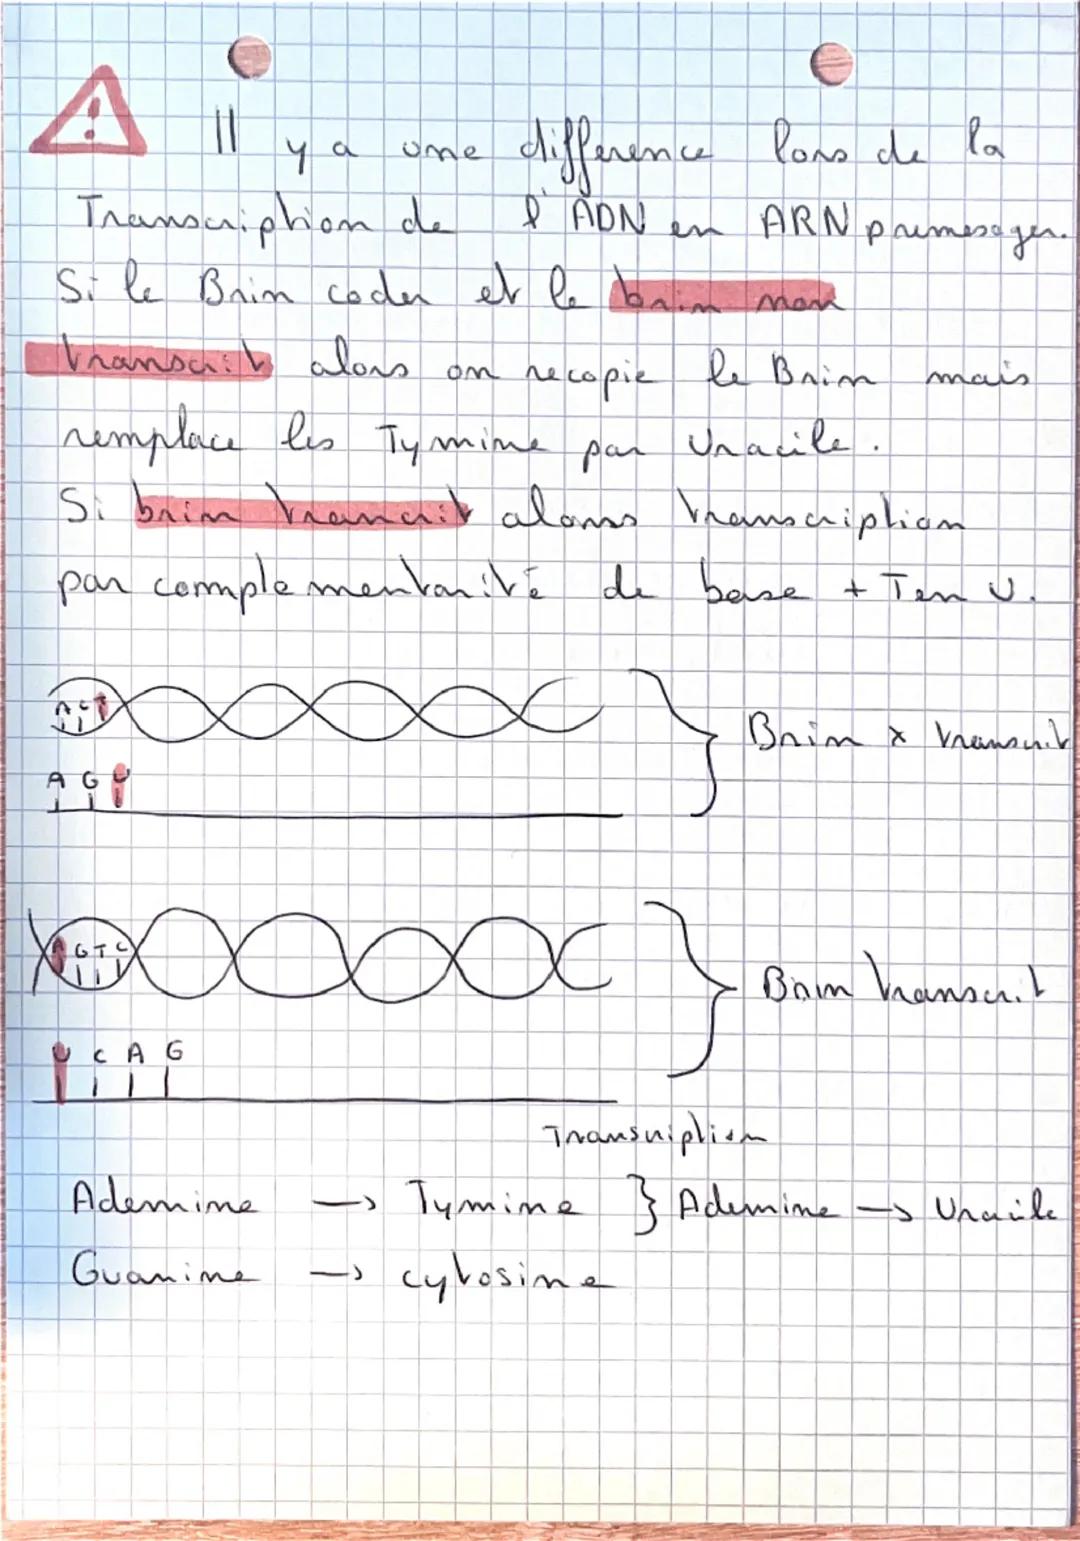 Il y a une difference lors de la
Transcription de l'ADN en ARN premesager.
Si le Brin coder et le brin non
transcrit alors on recopie le Brin mais
remplace les Tymine par Uracile.
Si brin trancrit alors transcription
par complementarité de base + T en U.
A C T
Brin x transcrit
A G U
A G T C
Brin transcrit
U C A G
Transcription
Adenine → Tymine } Adenine → Uracile
Guanine → cytosine